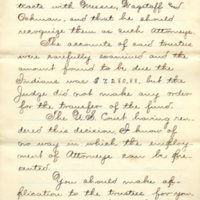 tracts with Messrs. Wagstaff and
Oakman, and that he should
recognize them as such Attorneys.
The accounts of said trustee
were carefully examined and the
amount found to be due the
Indians was $7,250.88, but the
Judge did not make any order
for the transfer of the fund.
The U.S. Court having ren-
dered this decision, I know of
no way in which the employ-
ment of Attorneys can be pre-
vented.
You should make ap-
plication to the trustee for you